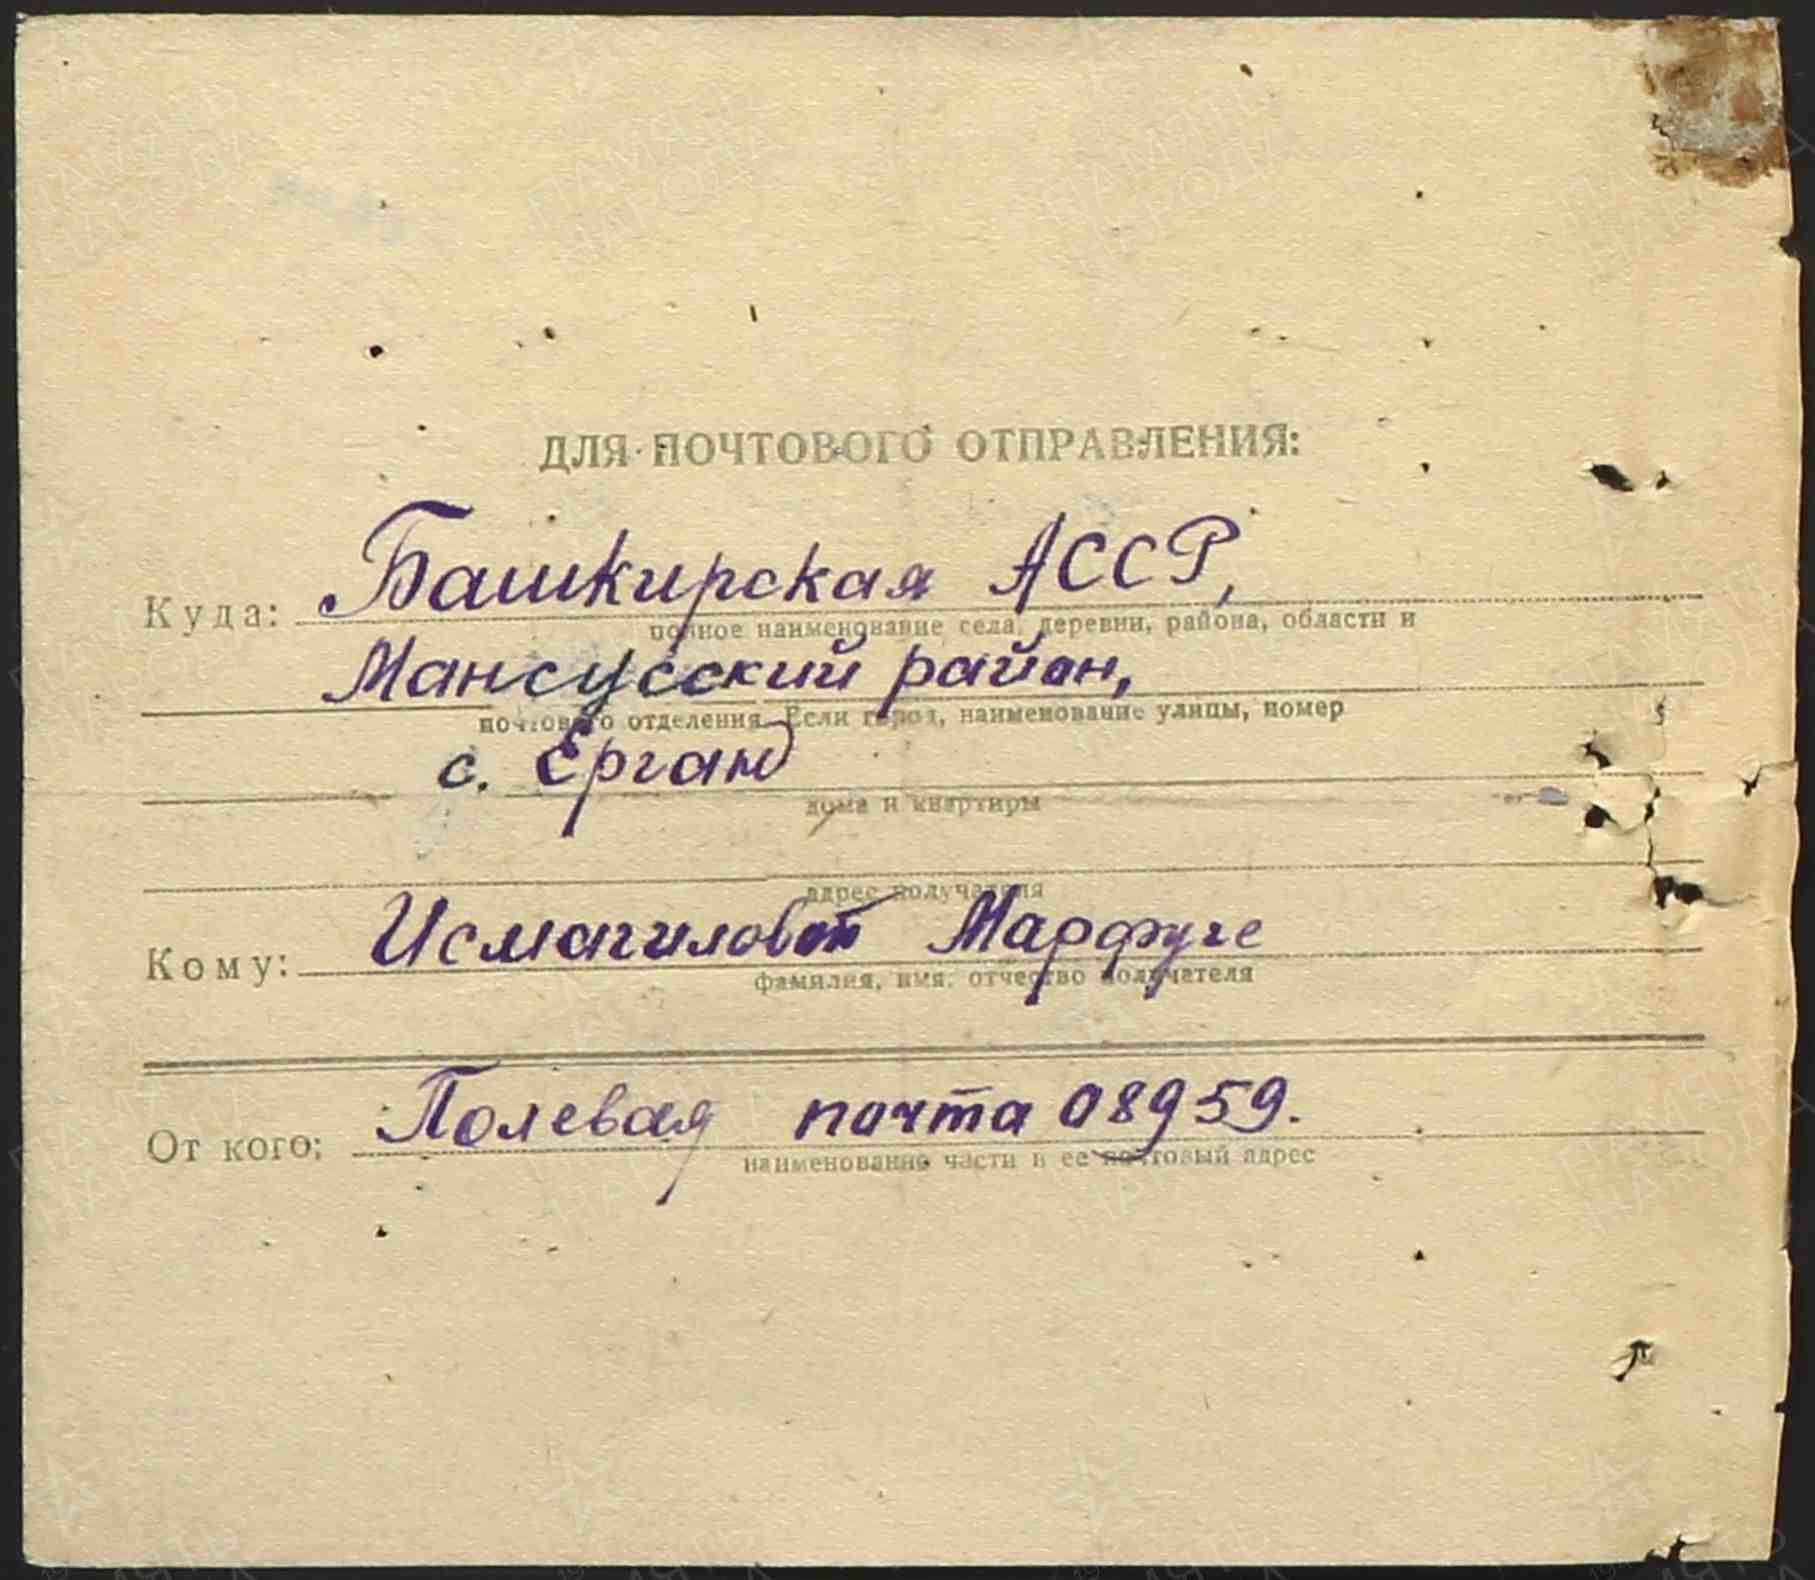 ДЛЯ ПОЧТОВОГО ОТПРАВЛЕНИЯ:
Куда: Башкирская АССР,
полное наименование села, деревни, района, области и
Мансусский район,
почтового отделения. Если город, наименование улицы, номер
с. Ерганд
дома и квартиры
адрес получателя
Кому: Исмагиловой Марфуге
фамилия, имя, отчество получателя
От кого: Полевая почта 08959.
наименование части и ее почтовый адрес